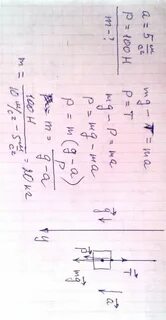 a = 5 м/с²
P = 100 Н
m - ?
mg - T = ma
P = T
mg - P = ma
P = mg - ma
P = m(g - a)
m = P/(g - a)
m = 100 Н/(10 м/с² - 5 м/с²) = 20 кг
g
y
T
P
mg
a